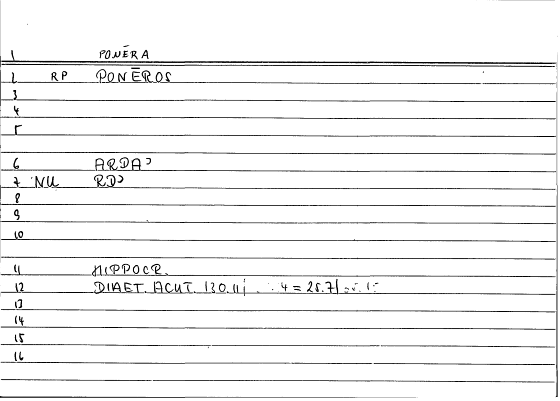 1 PONĒRA
2 RP PONĒROS
3
4
5
6 ARDAʾ
7 NU RDʾ
8
9
10
11 HIPPOCR.
12 DIAET. ACUT. 4 = 28.7
13
14
15
16